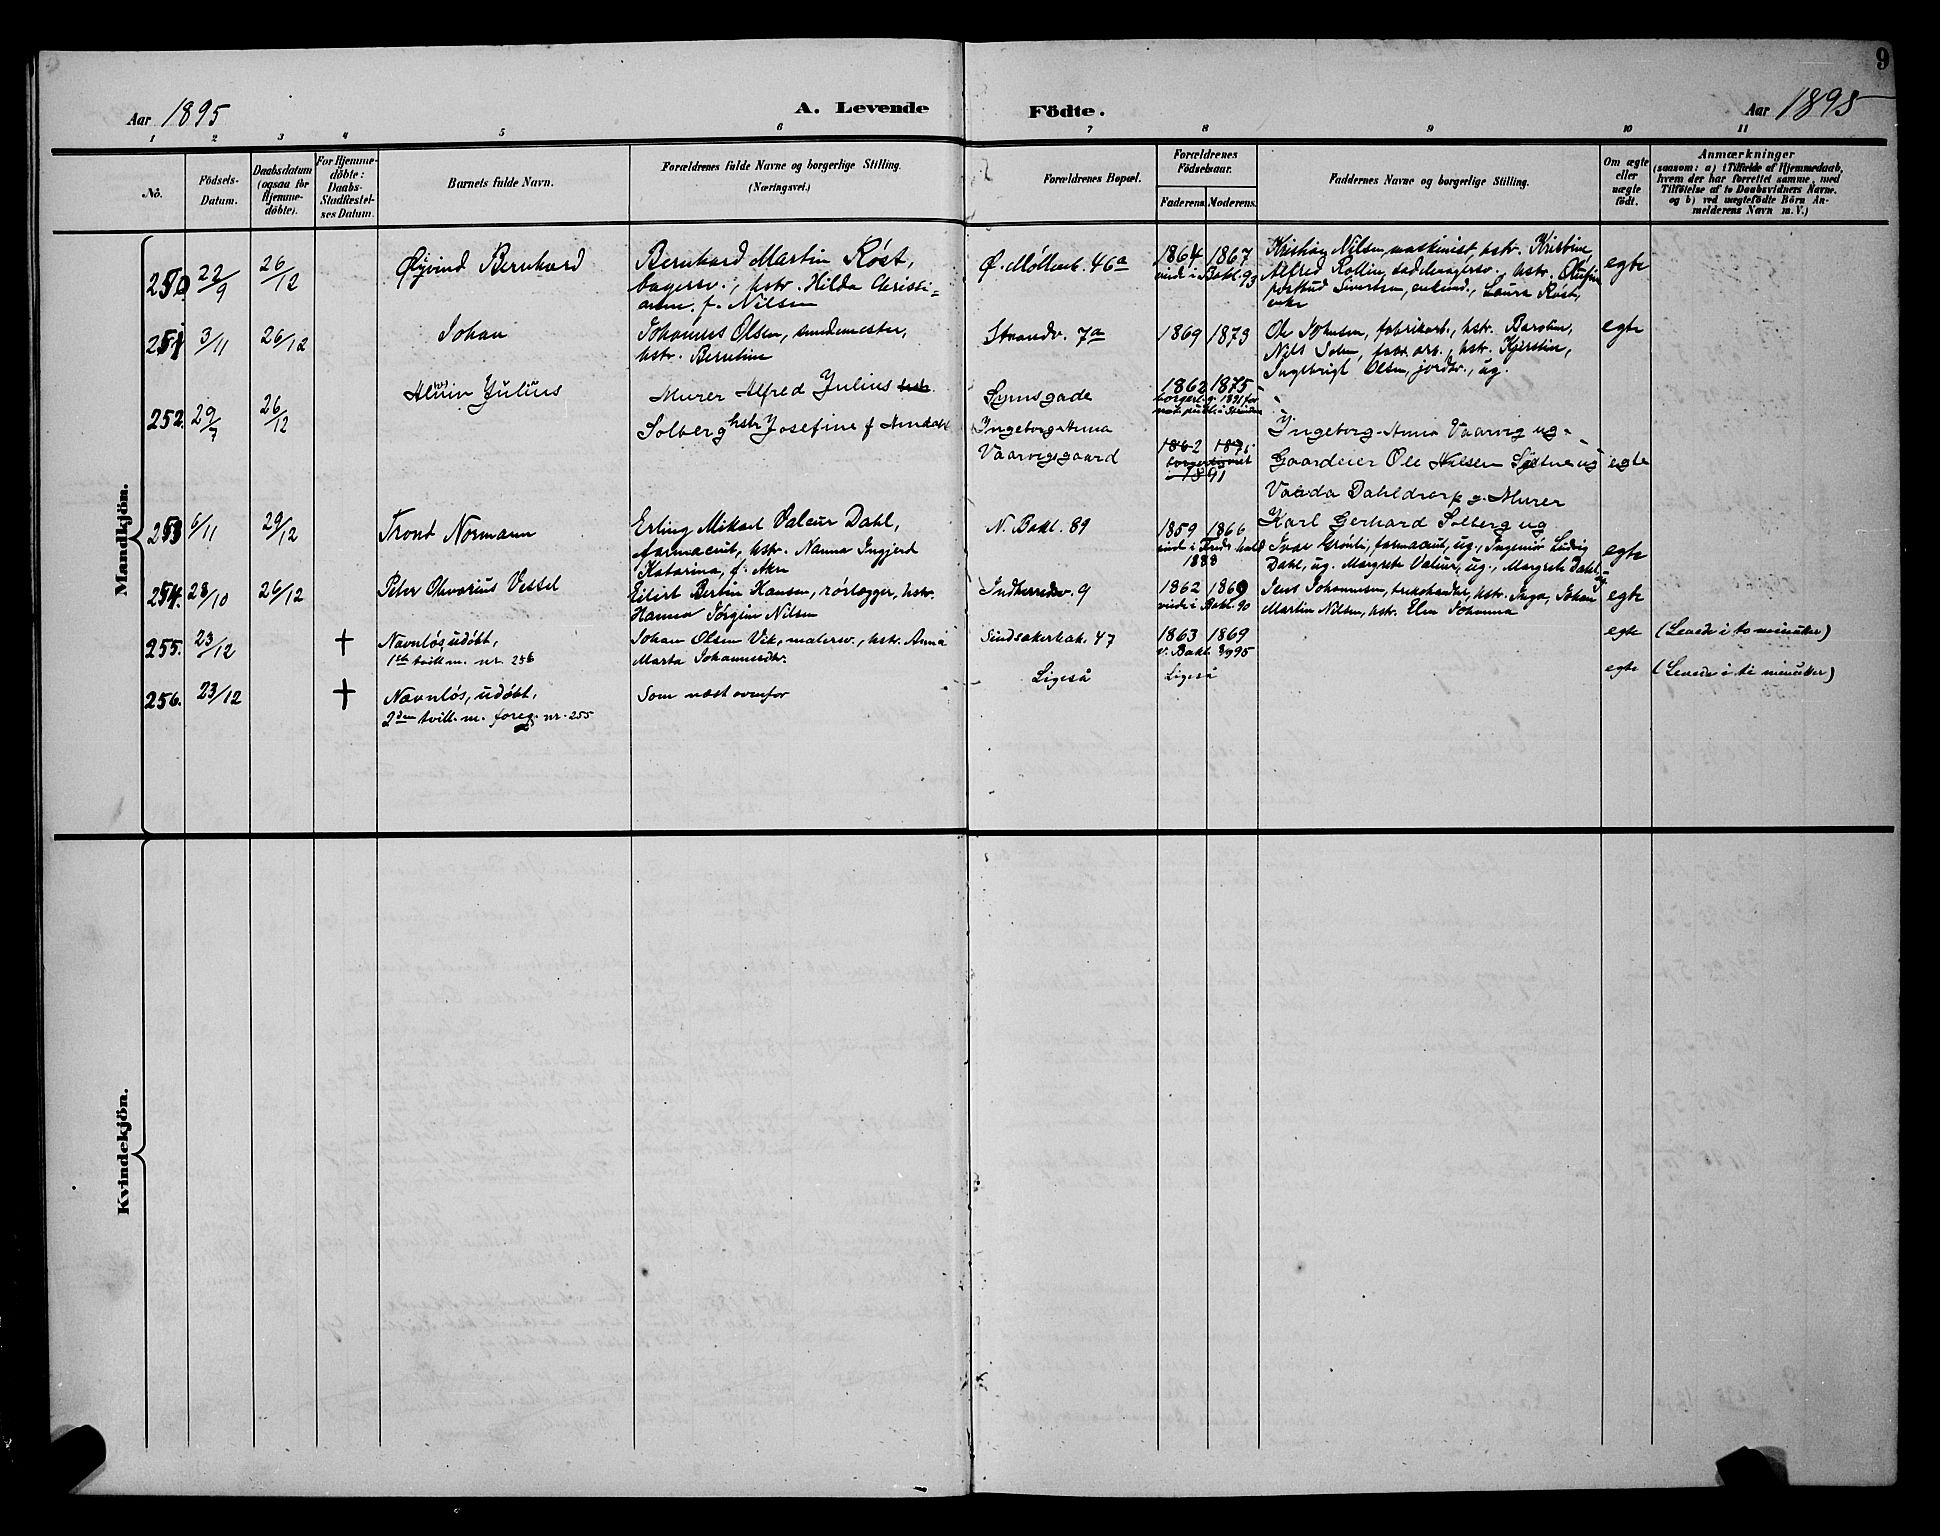 9
Aar 1895
A. Levende
Födte.
Aar 1895
1 2 3 4 5 6 7 8 9 10 11
No.
Födsels-
Datum.
Daabsdatum
(ogsaa for
Hjemme-
döbte).
For Hjemme-
döbte:
Daabs-
Stadfæstel-
ses Datum.
Barnets fulde Navn.
Forældrenes fulde Navne og borgerlige Stilling.
(Næringsvei.)
Forældrenes Bopæl.
Forældrenes
Födselsaar.
Faderens. Moderens.
Faddernes Navne og borgerlige Stilling.
Om ægte
eller
uægte
födt.
Anmærkninger
(saasom: a) i Tilfælde af Hjemmedaab,
hvem der har forrettet samme, med
Tilföielse af to Daabsvidners Navne.
og b) ved uægtefödte Börn An-
melderens Navn m. V.)
Mandkjön.
250 22/9 26/12
Øyvind Bernhard
Bernhard Martin Røst,
bagersv., hstr. Hilda Christi=
f. Nilsen
Ø. Møllenb. 46a
1864 1867
viede i Bakl. 93
Nilsen, maskinist, hstr. Kristine,
Alfred Rollin, sadelmagersv., hstr.
Sivertsen, Laura Røst,
enke
egte
251 3/11 26/12
Johan
Johannes Olsen, smedemester,
hstr. Berntine
Strandv. 7a
1869 1873
Ole Johnsen, fabrikarb., hstr.
Nils hstr. Kjerstin,
Ingebrigt Olsen, ug.
egte
252. 29/7 26/12
Julius
Murer Alfred Julius hstr
Solberg hstr Josefine f
Ingeborg Anna
Vaarvigsgaard
1862 1875
1862 1875
1891
Ingeborg Anna Vaarvig ug.
Gaardeier Ole Nilsen ug
Dahldrorp g. Murer
Karl Gerhard Solberg ug
egte
253 6/11 29/12
Trond Normann
Erling Mikael Valeur Dahl,
farmaceut, hstr. Nanna Ingjerd
Katarina, f. Aker
N. Bakl. 89
1859 1866
1888
Ivar Grönli, farmaceut, ug., Ingeniör Ludvig
Dahl, ug. Margrete Valeur, ug., Margrete Dahl, ug.
egte
254. 28/10 26/12
Peter Olvarius Vessel
Eilert Bertin Hansen, rörlægger, hstr.
Hanna Jörgine Nilsen
Indherredsv. 9
1862 1869
viede i Bakl. 90
Jens Johannesen, hstr. Inga, Johan
Martin Nilsen, hstr. Elen Johanna
egte
255. 23/12 +
Navnlös, udöbt,
1ste tvill. m. nr. 256
Johan Olsen Vik, malersv., hstr. Anna
Marta Johannesdtr.
Sindsakerbak. 47
1863 1869
v. Bakl. 95
egte
(Levede i to minutter)
256. 23/12 +
Navnlös, udöbt,
2den tvill. m. foreg. nr. 255
Som næst ovenfor
Ligeså
Ligeså
egte
(Levede i ti minutter)
Kvindekjön.